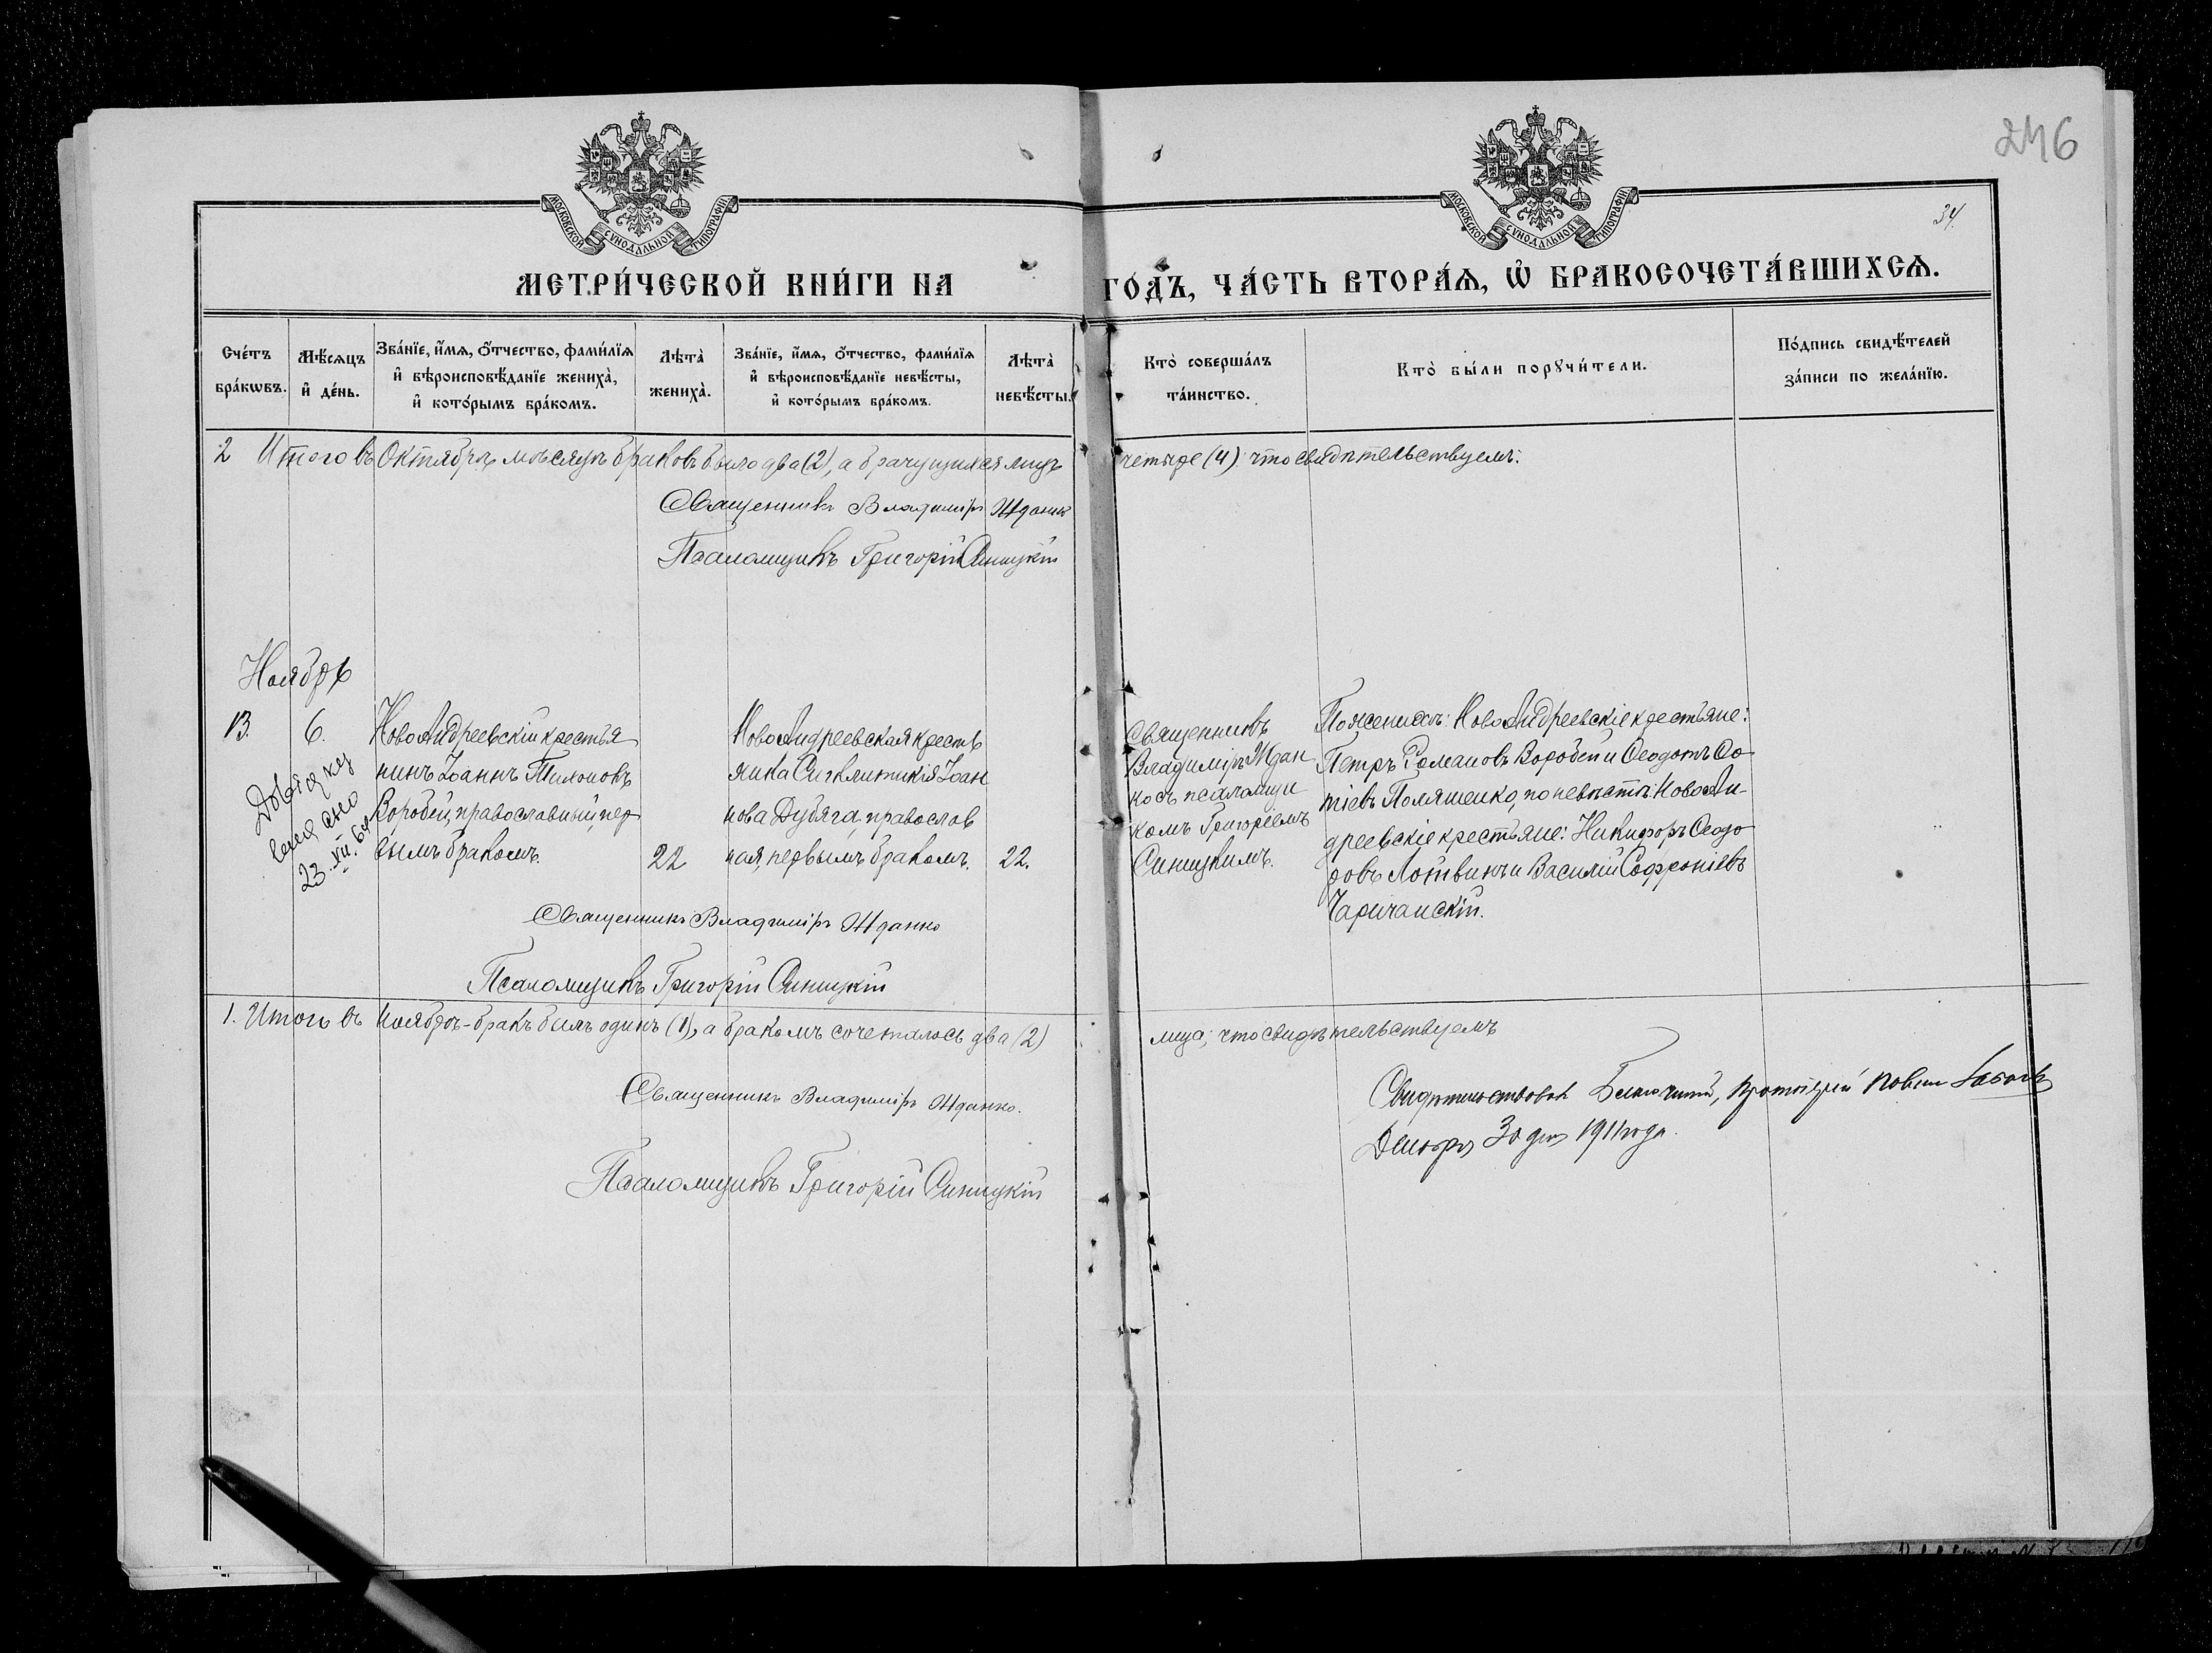 246
34.
МОСКОВСКОЙ СѴНОДАЛЬНОЙ ТИПОГРАФІИ
МОСКОВСКОЙ СѴНОДАЛЬНОЙ ТИПОГРАФІИ
МЕТРИ́ЧЕСКОЙ КНИ́ГИ НА ГО́ДЪ, ЧА́СТЬ ВТОРА́Ѧ, Ѡ҆ БРАКОСОЧЕТА́ВШИХСѦ.
Сче́тъ бра́кѡвъ.
Мѣ́сяцъ и҆ де́нь.
Зва́нїе, и҆́мѧ, о҆́тчество, фами́лїѧ
и҆ вѣроисповѣ́данїе жениха̀,
и҆ кото́рымъ бра́комъ.
Лѣта̀ жениха̀.
Зва́нїе, и҆́мѧ, о҆́тчество, фами́лїѧ
и҆ вѣроисповѣ́данїе невѣ́сты,
и҆ кото́рымъ бра́комъ.
Лѣта̀ невѣ́сты.
Кто̀ соверша́лъ та́инство.
Кто̀ бы́ли порꙋчи́тели.
По́дпись свидѣ́телей за́писи по жела́нїю.
2 Итого въ Октябрѣ мѣсяцѣ браковъ было два (2), а брачущихся лицъ четыре (4): что свидѣтельствуемъ:
Священникъ Владиміръ Жданко
Псаломщикъ Григорій Синицкій
Ноябрь
13. 6.
Довідку
видано
23.XII.64
НовоАндреевскій крестья
нинъ Іоаннъ Тихоновъ
Воробей, православный, пер
вымъ бракомъ.
22
НовоАндреевская кресть
янка Сигклитикія Іоан
нова Дубяга, православ
ная, первымъ бракомъ.
22.
Священникъ
Владиміръ Ждан
ко съ псаломщи
комъ Григоріемъ
Синицкимъ.
По женихѣ: НовоАндреевскіе крестьяне:
Петръ Романовъ Воробей и Ѳеодотъ Фо
тіевъ Поляшенко, по невѣстѣ: НовоАн-
дреевскіе крестьяне: Никифоръ Ѳеодо
ровъ Лотвинъ и Василій Софроніевъ
Чаричанскій.
Священникъ Владиміръ Жданко
Псаломщикъ Григорій Синицкій
1. Итого въ Ноябрѣ - бракъ былъ одинъ (1), а бракомъ сочеталось два (2) лица; что свидѣтельствуемъ
Священникъ Владиміръ Жданко.
Псаломщикъ Григорій Синицкій
Свидѣтельствовалъ Благочинный, Протоіерей
Декабря 30 дня 1911 года.